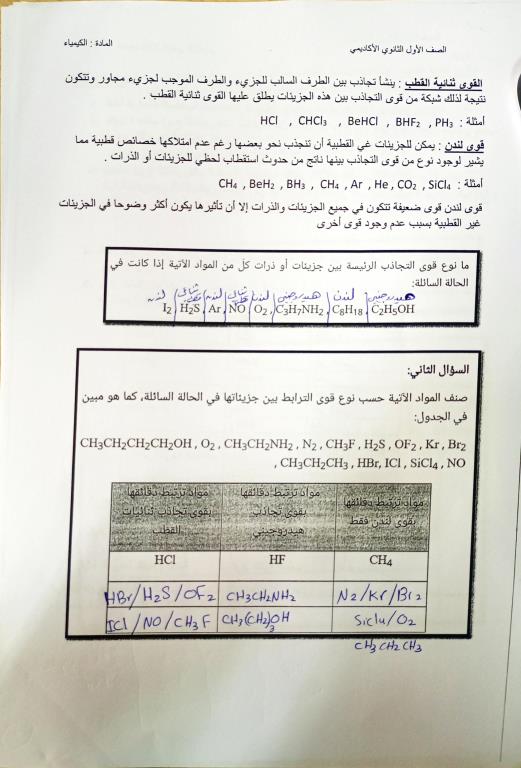 الصف الأول الثانوي الأكاديمي
المادة : الكيمياء
القوى ثنائية القطب : ينشأ تجاذب بين الطرف السالب للجزيء والطرف الموجب لجزيء مجاور وتتكون
نتيجة لذلك شبكة من قوى التجاذب بين هذه الجزيئات يطلق عليها القوى ثنائية القطب .
أمثلة : HCl , CHCl3 , BeHCl , BHF2 , PH3
قوى لندن : يمكن للجزيئات غي القطبية أن تنجذب نحو بعضها رغم عدم امتلاكها خصائص قطبية مما
يشير لوجود نوع من قوى التجاذب بينها ناتج من حدوث استقطاب لحظي للجزيئات أو الذرات .
أمثلة : CH4 , BeH2 , BH3 , CH4 , Ar , He , CO2 , SiCl4
قوى لندن قوى ضعيفة تتكون في جميع الجزيئات والذرات إلا أن تأثيرها يكون أكثر وضوحا في الجزيئات
غير القطبية بسبب عدم وجود قوى أخرى
ما نوع قوى التجاذب الرئيسة بين جزيئات أو ذرات كل من المواد الآتية إذا كانت في
الحالة السائلة:
هيدروجيني لندن هيدروجيني لندن ثنائي قطب لندن ثنائي قطب لندن
I2 , H2S , Ar , NO , O2 , C3H7NH2 , C8H18 , C2H5OH
السؤال الثاني:
صنف المواد الآتية حسب نوع قوى الترابط بين جزيئاتها في الحالة السائلة، كما هو مبين
في الجدول:
CH3CH2CH2CH2OH , O2 , CH3CH2NH2 , N2 , CH3F , H2S , OF2 , Kr , Br2
, CH3CH2CH3 , HBr, ICl , SiCl4 , NO
مواد ترتبط دقائقها بقوى لندن فقط
مواد ترتبط دقائقها بقوى تجاذب هيدروجيني
مواد ترتبط دقائقها بقوى تجاذب ثنائيات القطب
HCl HF CH4
HBr/H2S/OF2 CH3CH2NH2 N2/Kr/Br2
ICl/NO/CH3F CH3(CH2)3OH SiCl4/O2
CH3CH2CH3